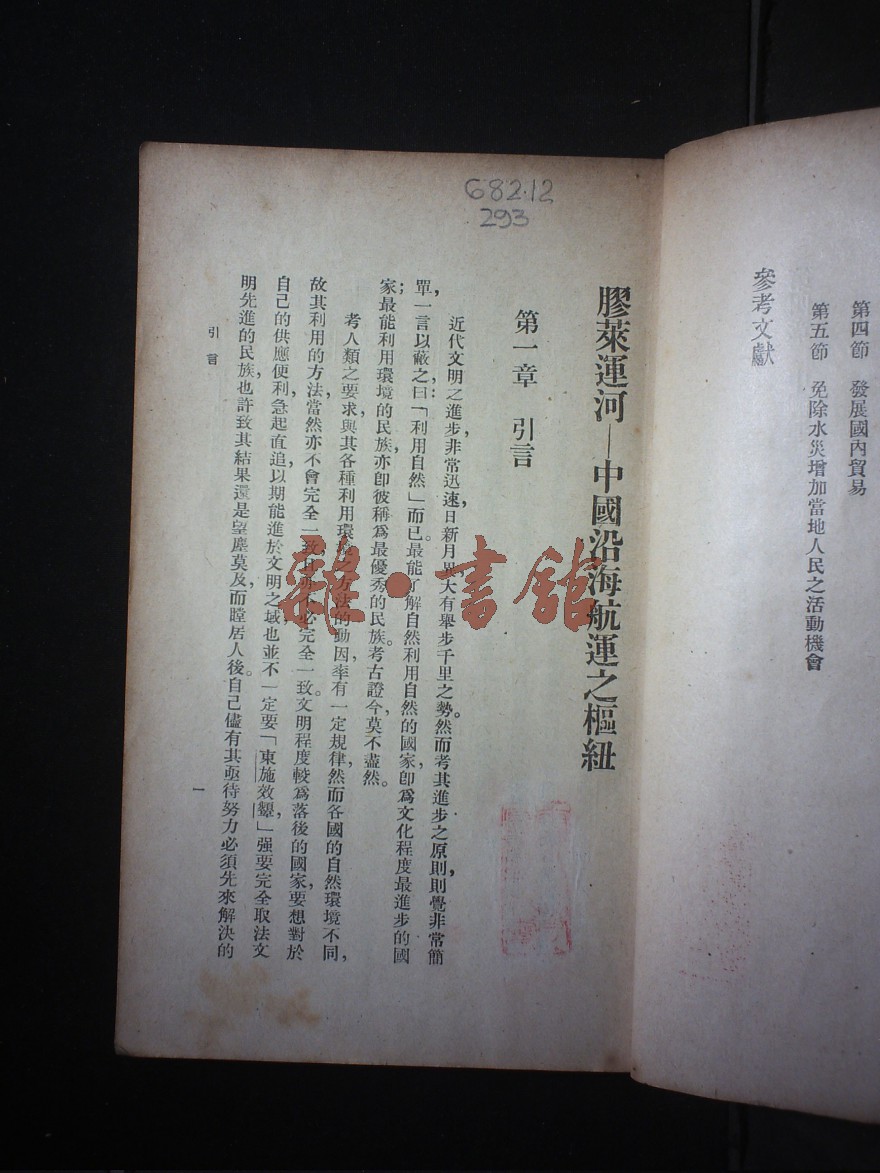 第四節　發展國內貿易
第五節　免除水災增加當地人民之活動機會
參考文獻
682.12
293
膠萊運河—中國沿海航運之樞紐
第一章　引言
近代文明之進步非常迅速，日新月異，大有舉步千里之勢。然而考其進步之原則，則覺非常簡
單，一言以蔽之曰：「利用自然」而已。最能了解自然利用自然的國家，即爲文化程度最進步的國
家；最能利用環境的民族，亦即彼稱爲最優秀的民族。考古證今，莫不盡然。
考人類之要求，與其各種利用環境之方法的動因，率有一定規律，然而各國的自然環境不同，
故其利用的方法，當然亦不會完全一致，且亦不必完全一致。文明程度較爲落後的國家，要想對於
自己的供應便利，急起直追，以期能進於文明之域也，並不一定要「東施效顰，」强要完全取法文
明先進的民族，也許致其結果還是望塵莫及，而瞠居人後。自己儘有其亟待努力必須先來解決的
引言
一
雜·書館